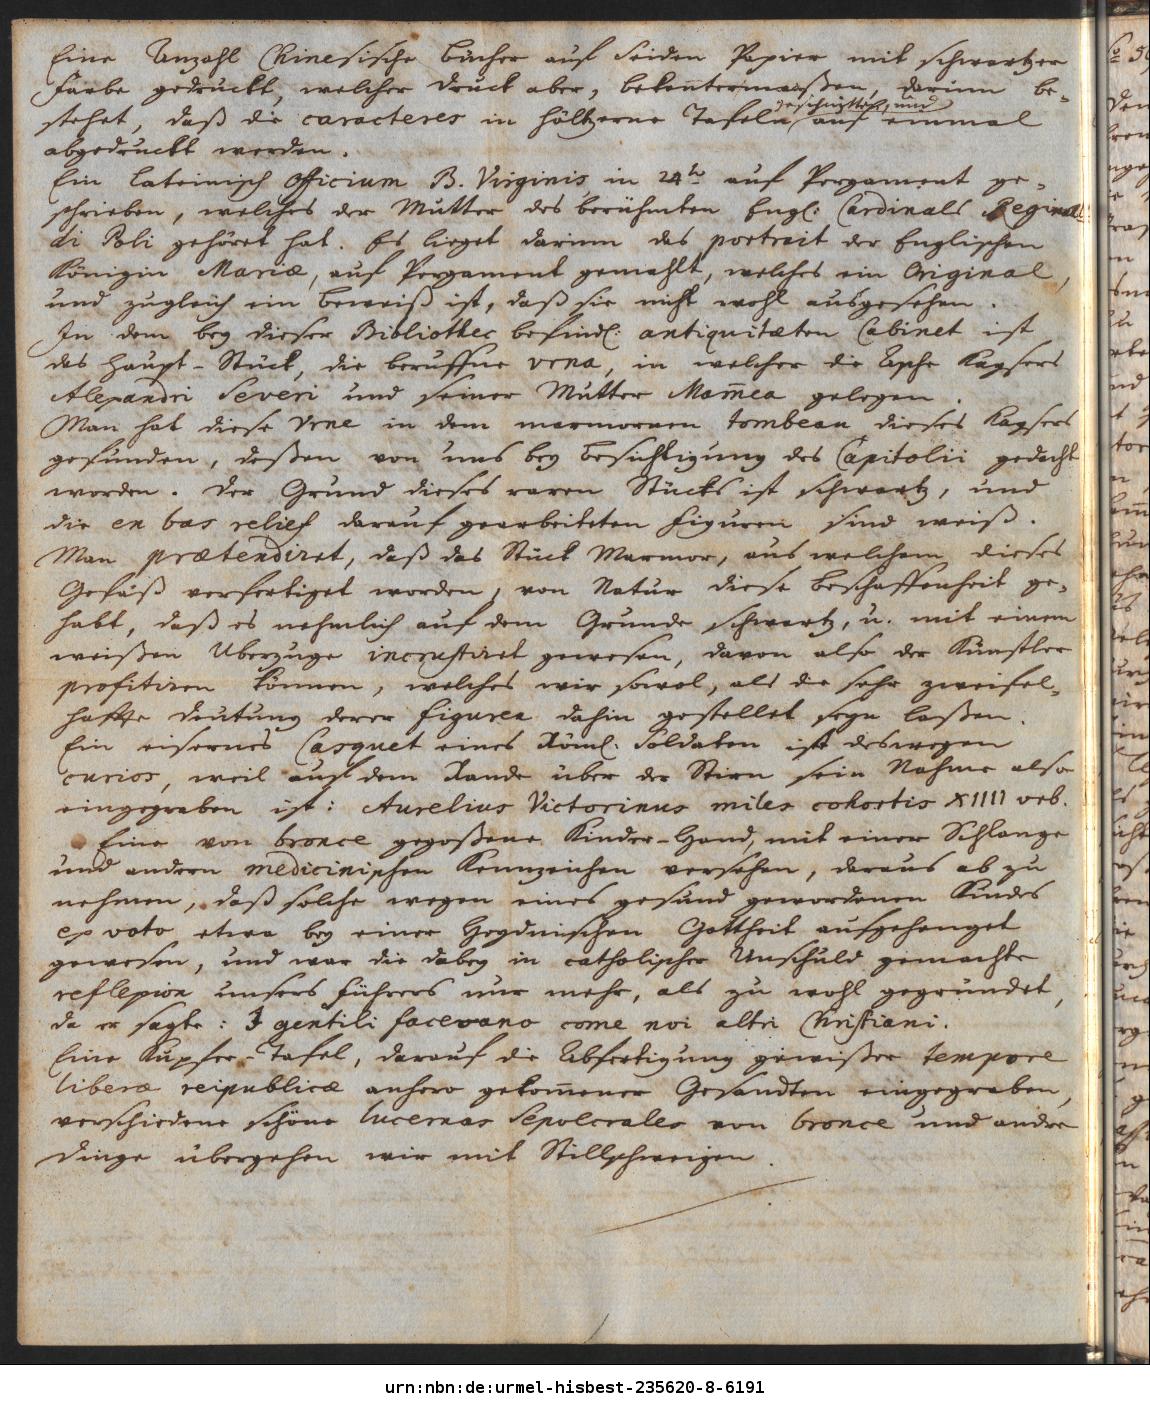 Eine Anzahl Chinesische Bücher auf seiden Papier mit schwartzer
Farbe gedruckt, welcher Druck aber, bekan̄termaaßen, darinn be-
stehet, daß die caracteres in höltzerne Tafeln geschnitten, und auf einmal
abgedruckt werden.
Ein lateinisch Officium B. Virginis in 24to auf Pergament ge-
schrieben, welches der Mutter des berühmten Engl: Cardinals Reginal
di Poli gehöret hat. Es lieget darinn das portrait der Englischen
Königin Mariæ, auf Pergament gemahlt, welches ein Original,
und zugleich ein Beweiß ist, daß sie nicht wohl ausgesehen.
In dem bey dieser Bibliothec befindl: antiquitæten Cabinet ist
das Haupt-Stück, die beruffne vrna, in welcher die Asche Kaysers
Alexandri Severi und seiner Mutter Mam̄ea gelegen.
Man hat diese Vrne in dem marmornen tombeau dieses Kaysers
gefunden, deßen von uns bey Besichtigung des Capitolii gedacht
worden. Der Grund dieses raren Stücks ist schwartz, und
die en bas relief darauf gearbeiteten Figuren sind weiß.
Man prætendiret, daß das Stück Marmor, aus welchem dieses
Gefäß verfertiget worden, von Natur diese Beschaffenheit ge-
habt, daß es nehmlich auf dem Grunde schwartz, u. mit einem
weißen Uberzuge incrustiret gewesen, davon also der Künstler
profitiren können, welches wir sowol, als die sehr zweifel-
haffte Deutung derer Figuren dahin gestellet seyn laßen.
Ein eisernes Casquet eines Röml: Soldaten ist deswegen
curios, weil auf dem Rande über der Stirn sein Nahme also
eingegraben ist: Aurelius Victorinus miles cohortis XIIII vrb.
Eine von bronce gegoßene Kinder-Hand, mit einer Schlange
und andern medicinischen Kennzeichen versehen, daraus ab zu
nehmen, daß solche wegen eines gesund gewordenen Kindes
ex voto etwa bey einer Heydnischen Gottheit aufgehenget
gewesen, und war die dabey in catholischer Unschuld gemachte
reflexion unsers Führers nur mehr, als zu wohl gegründet,
da er sagte: I gentili facevano come noi altri Christiani.
Eine Kupfer-Tafel, darauf die Abfertigung gewißer tempore
liberæ reipublicæ anhero gekom̄ener Gesandten eingegraben,
verschiedene schöne lucernas Sepolcrales von bronce und andre
Dinge übergehen wir mit Stillschweigen.
urn:nbn:de:urmel-hisbest-235620-8-6191